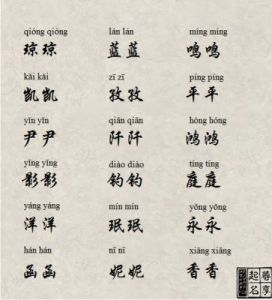 qióng qióng lán lán míng míng
琼琼 蓝蓝 鸣鸣
kǎi kǎi zī zī píng píng
凯凯 孜孜 平平
yǐn yǐn qiān qiān hóng hóng
尹尹 阡阡 鸿鸿
yǐng yǐng diào diào tíng tíng
影影 钓钓 庭庭
yáng yáng mín mín yǒng yǒng
洋洋 珉珉 永永
hán hán nī nī xiāng xiāng
函函 妮妮 香香
尊享
起名